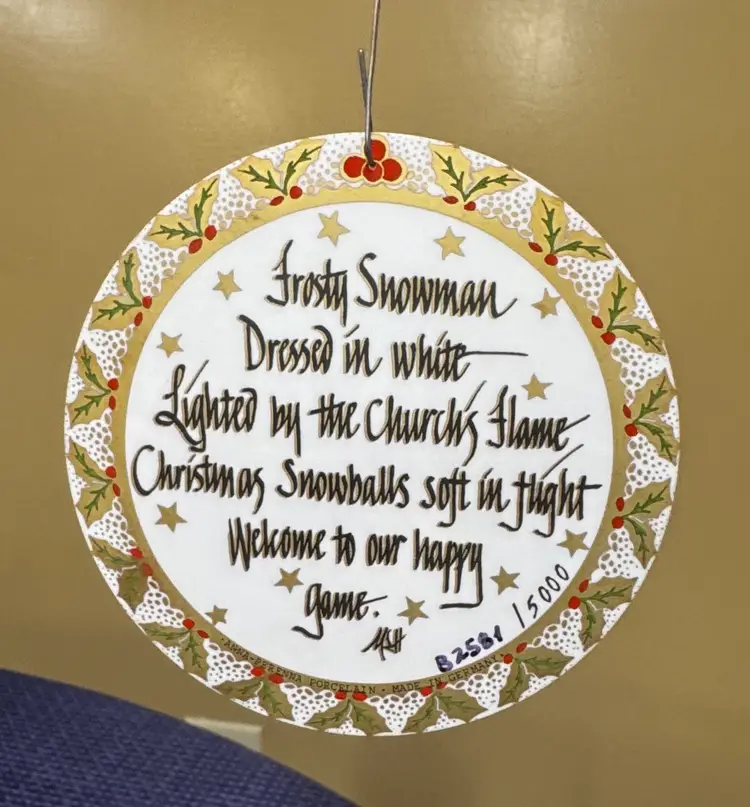 Frosty Snowman
Dressed in white
Lighted by the Church's Flame
Christmas Snowballs soft in flight
Welcome to our happy
game.
MSH
B2581 / 5000
· ANNA-PERENNA PORCELAIN · MADE IN GERMANY ·